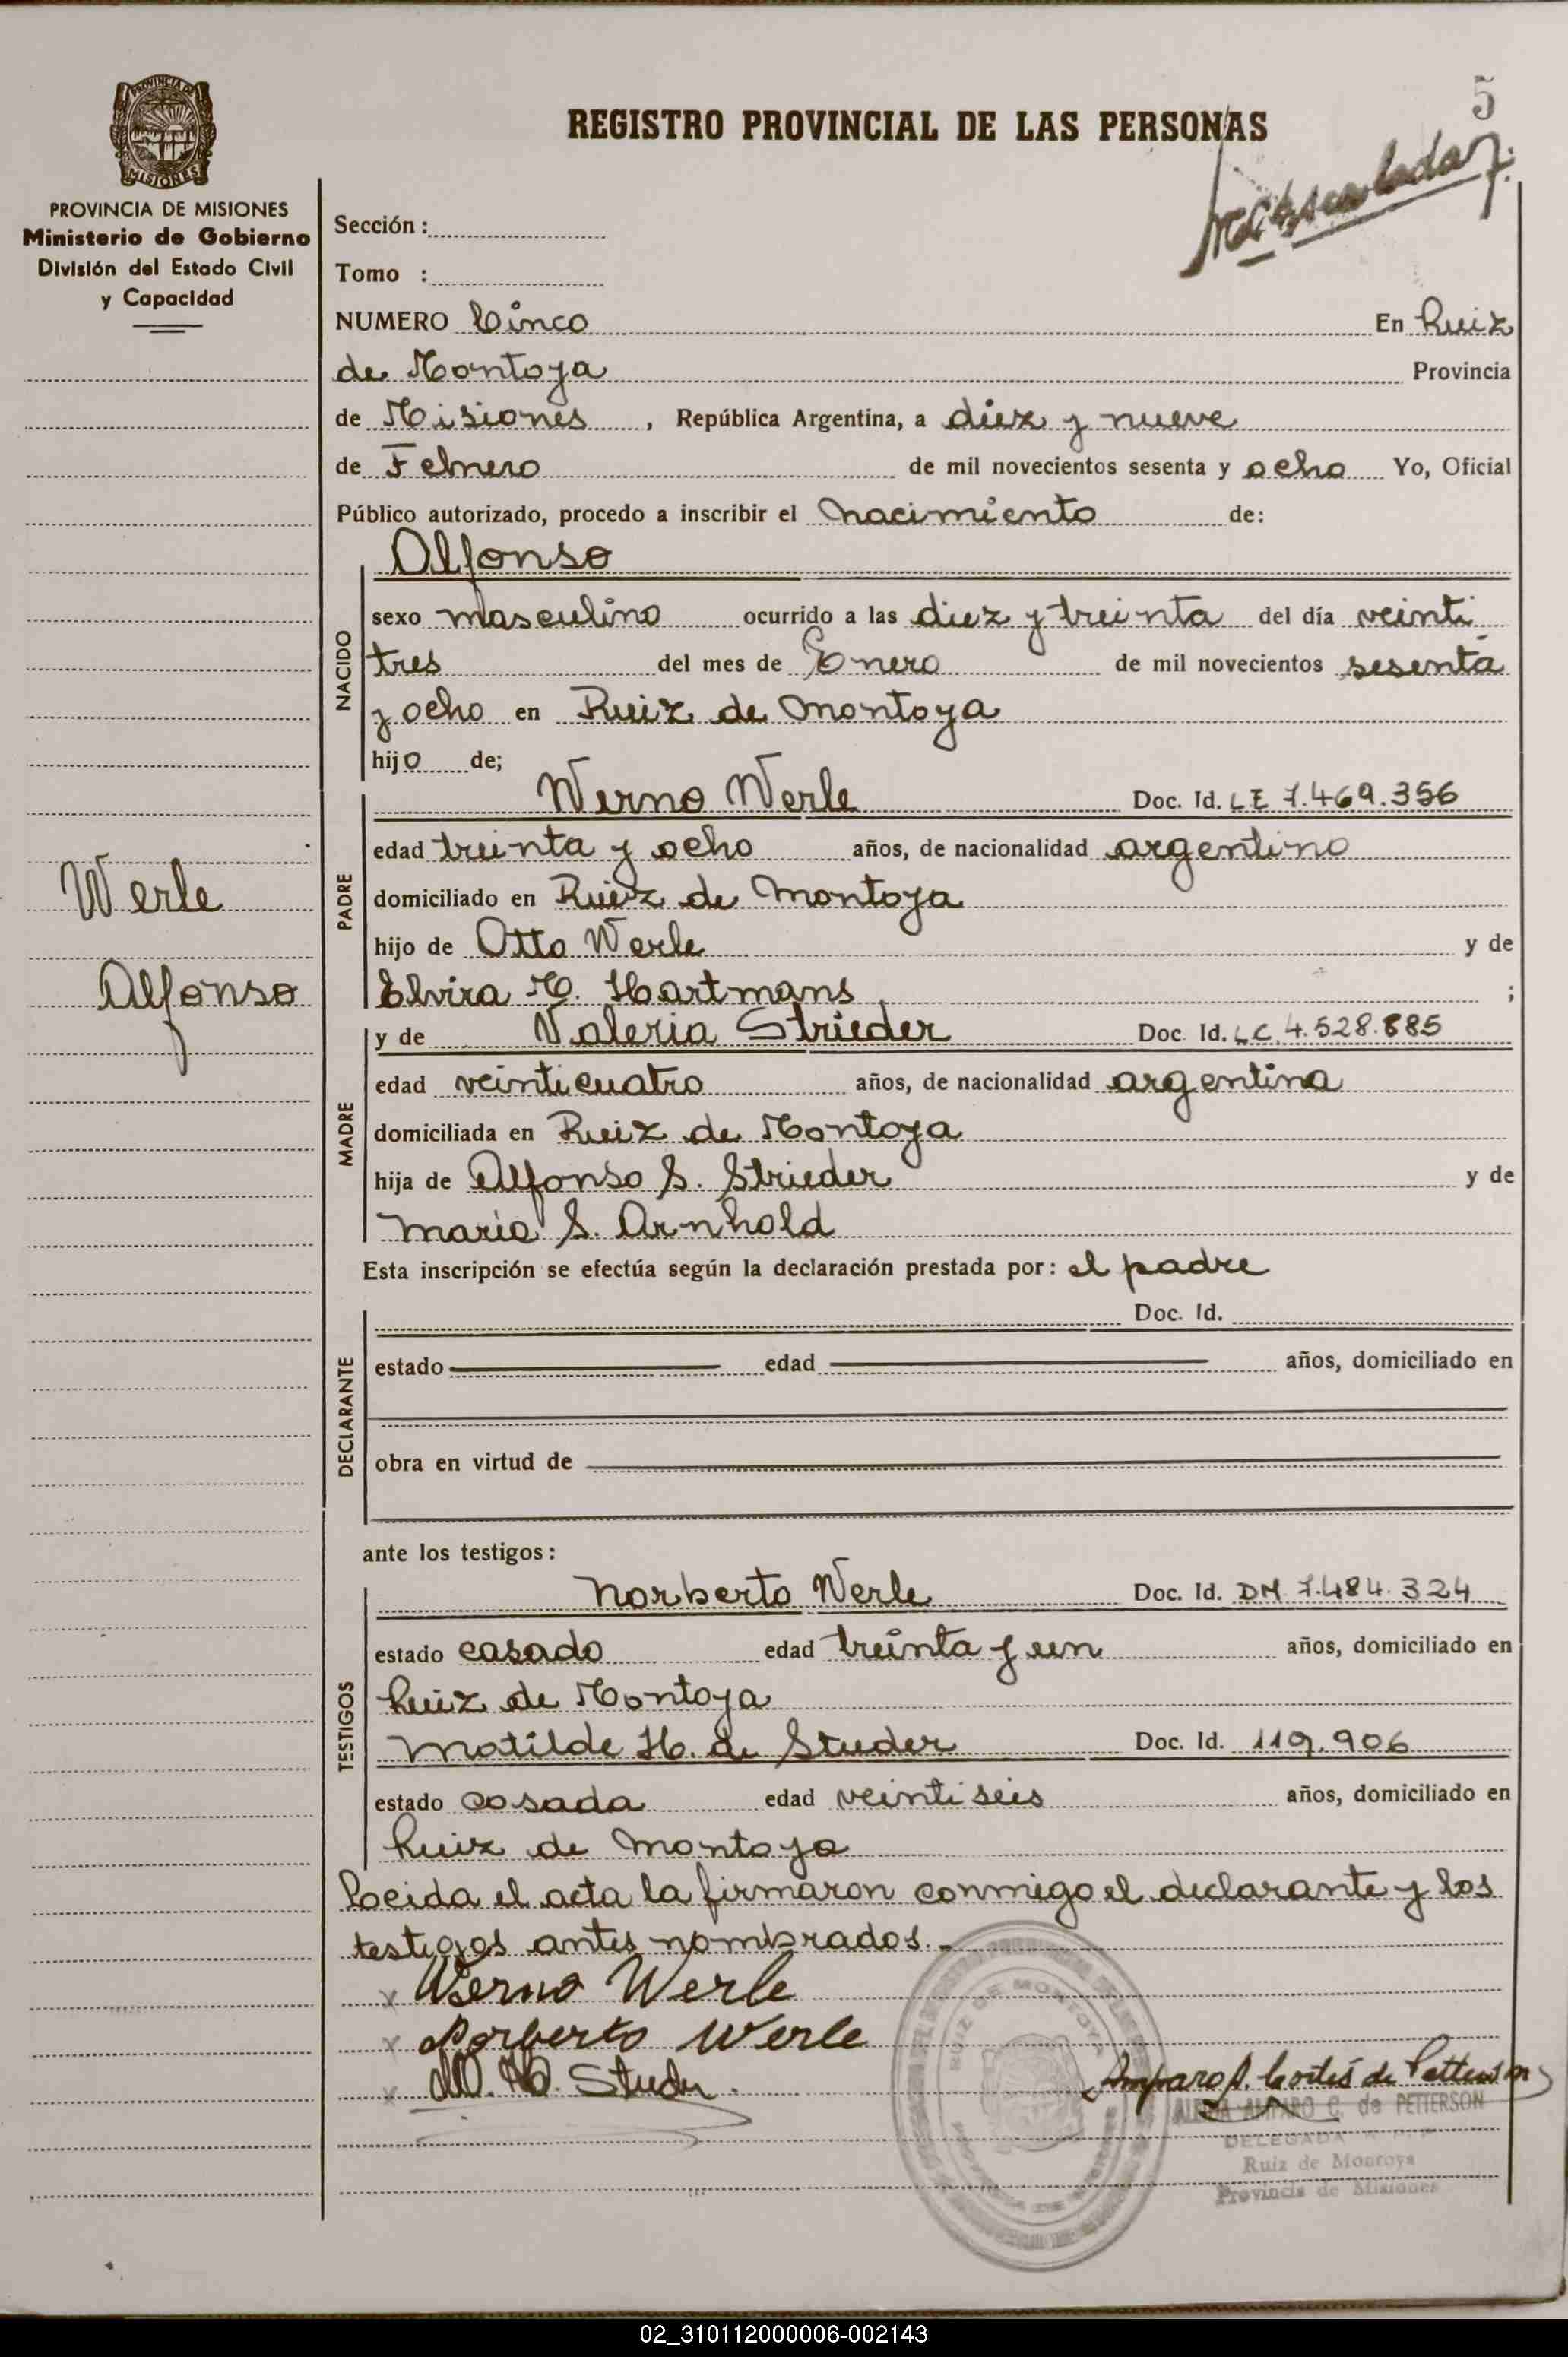 5
REGISTRO PROVINCIAL DE LAS PERSONAS
PROVINCIA DE
MISIONES
PROVINCIA DE MISIONES
Ministerio de Gobierno
División del Estado Civil
y Capacidad
Sección :
Tomo :
NUMERO Cinco En Ruiz
de Montoya Provincia
de Misiones , República Argentina, a diez y nueve
de Febrero de mil novecientos sesenta y ocho Yo, Oficial
Público autorizado, procedo a inscribir el nacimiento de:
Alfonso
NACIDO
sexo masculino ocurrido a las diez y treinta del día veinti
tres del mes de Enero de mil novecientos sesenta
y ocho en Ruiz de Montoya
hijo de;
PADRE
Werno Werle Doc. Id. LE 7.469.356
edad treinta y ocho años, de nacionalidad argentino
domiciliado en Ruiz de Montoya
hijo de Otto Werle y de
Elvira M. Hartmans ;
Werle
Alfonso
MADRE
y de Valeria Strieder Doc. Id. LC 4.528.885
edad veinticuatro años, de nacionalidad argentina
domiciliada en Ruiz de Montoya
hija de Alfonso S. Strieder y de
Maria S. Arnhold
Esta inscripción se efectúa según la declaración prestada por: el padre
DECLARANTE
Doc. Id.
estado edad años, domiciliado en
obra en virtud de
ante los testigos:
TESTIGOS
Norberto Werle Doc. Id. DM 7.484.324
estado casado edad treinta y un años, domiciliado en
Ruiz de Montoya
Matilde H. de Studer Doc. Id. 119.906
estado casada edad veintiseis años, domiciliado en
Ruiz de Montoya
Leeida el acta la firmaron conmigo el declarante y los
testigos antes nombrados.-
x Werno Werle
x Norberto Werle
x M. H. Studer.
Amparo A. Cortés de Petterson
AMPARO C. de PETTERSON
DELEGADA
Ruiz de Montoya
Provincia de Misiones
RUIZ DE MONTOYA
02_310112000006-002143